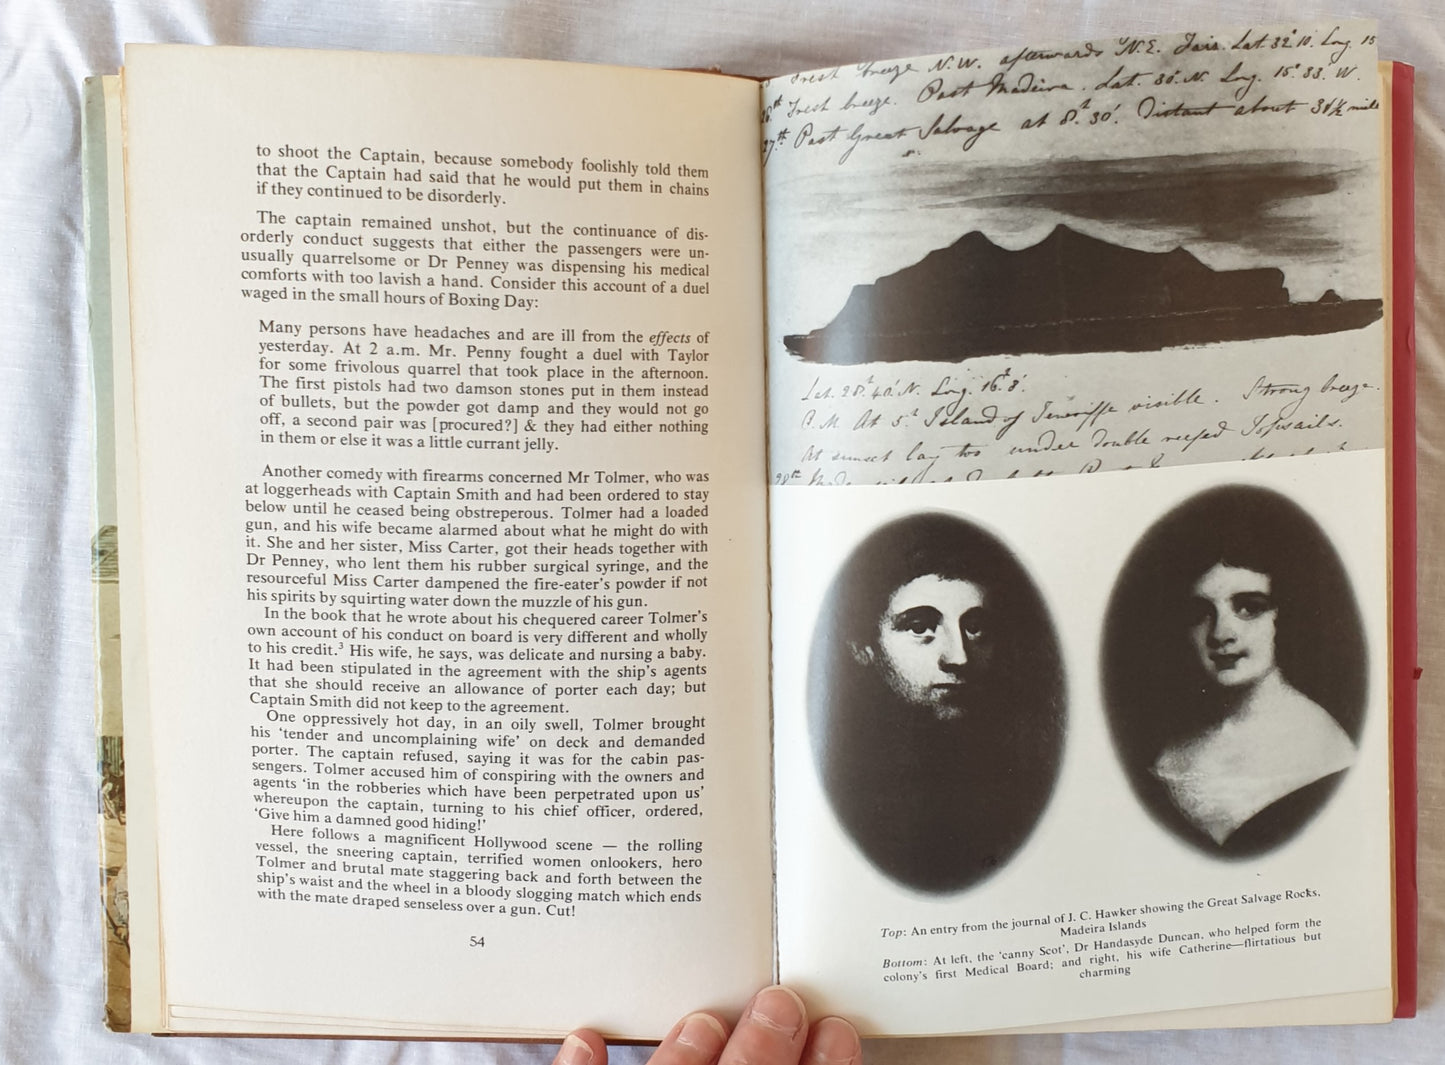 to shoot the Captain, because somebody foolishly told them
that the Captain had said that he would put them in chains
if they continued to be disorderly.
The captain remained unshot, but the continuance of dis-
orderly conduct suggests that either the passengers were un-
usually quarrelsome or Dr Penney was dispensing his medical
comforts with too lavish a hand. Consider this account of a duel
waged in the small hours of Boxing Day:
Many persons have headaches and are ill from the effects of
yesterday. At 2 a.m. Mr. Penny fought a duel with Taylor
for some frivolous quarrel that took place in the afternoon.
The first pistols had two damson stones put in them instead
of bullets, but the powder got damp and they would not go
off, a second pair was [procured?] & they had either nothing
in them or else it was a little currant jelly.
Another comedy with firearms concerned Mr Tolmer, who was
at loggerheads with Captain Smith and had been ordered to stay
below until he ceased being obstreperous. Tolmer had a loaded
gun, and his wife became alarmed about what he might do with
it. She and her sister, Miss Carter, got their heads together with
Dr Penney, who lent them his rubber surgical syringe, and the
resourceful Miss Carter dampened the fire-eater's powder if not
his spirits by squirting water down the muzzle of his gun.
In the book that he wrote about his chequered career Tolmer's
own account of his conduct on board is very different and wholly
to his credit.³ His wife, he says, was delicate and nursing a baby.
It had been stipulated in the agreement with the ship's agents
that she should receive an allowance of porter each day; but
Captain Smith did not keep to the agreement.
One oppressively hot day, in an oily swell, Tolmer brought
his 'tender and uncomplaining wife' on deck and demanded
porter. The captain refused, saying it was for the cabin pas-
sengers. Tolmer accused him of conspiring with the owners and
agents 'in the robberies which have been perpetrated upon us'
whereupon the captain, turning to his chief officer, ordered,
'Give him a damned good hiding!'
Here follows a magnificent Hollywood scene — the rolling
vessel, the sneering captain, terrified women onlookers, hero
Tolmer and brutal mate staggering back and forth between the
ship's waist and the wheel in a bloody slogging match which ends
with the mate draped senseless over a gun. Cut!
54
Fresh breeze N.W. afterwards N.E. Fair. Lat. 32° 10. Long. 15
26th Fresh breeze. Past Madeira. Lat. 30° N. Long. 15° 33' W.
27th Past Great Salvage at 8h 30'. Distant about 3 1/2 mile
Lat. 28° 40' N. Long. 16° 8'.
P.M. At 5h Island of Teneriffe visible. Strong breeze.
At sunset lay too under double reefed Topsails.
28th
Top: An entry from the journal of J. C. Hawker showing the Great Salvage Rocks,
Madeira Islands
Bottom: At left, the 'canny Scot', Dr Handasyde Duncan, who helped form the
colony's first Medical Board; and right, his wife Catherine—flirtatious but
charming